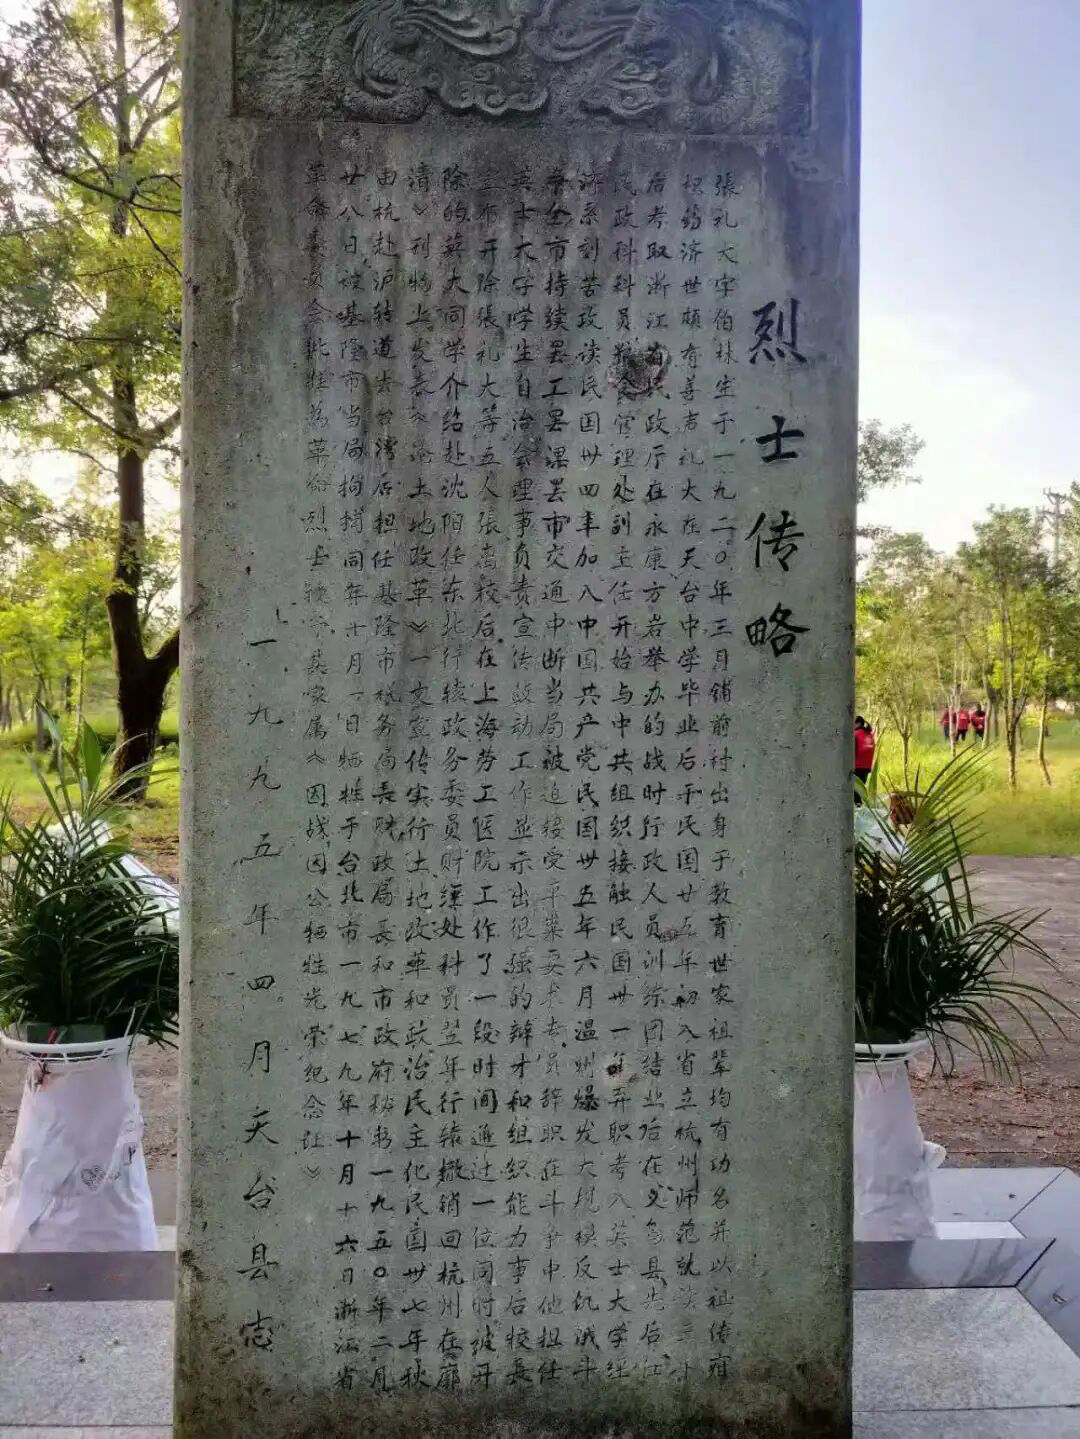 烈士传略
張礼大字伯林生于一九二〇年三月铺前村出身于教育世家祖辈均有功名并以祖传
药济世颇有善声礼大在天台中学毕业后于民国廿五年初入省立杭州师范就读三
后考取浙江省民政厅在永康方岩举办的战时行政人员训练团结业后在义乌县先后任
民政科科员粮食管理处副主任开始与中共组织接触民国卅一年弃职考入英士大学经
济系刻苦攻读民国卅四年加入中国共产党民国卅五年六月温州爆发大规模反饥饿斗
争全市持续罢工罢课罢市交通中断当局被迫接受平粜要求专员辞职在斗争中他担任
英士大学学生自治会理事负责宣传鼓动工作显示出很强的辩才和组织能力事后校長
宣布开除張礼大等五人張离校后在上海劳工医院工作了一段时间通过一位同时被开
除的英大同学介绍赴沈阳任东北行辕政务委员财经处科员翌年行辕撤销回杭州在廓
清》刊物上发表土地改革》一文宣传实行土地改革和政治民主化民国卅七年秋
由杭赴沪转道去台湾后担任基隆市税务局長财政局長和市政府秘书一九五〇年二月
廿八日被基隆市当局拘捕同年十月一日牺牲于台北市一九七九年十月十六日浙江省
革命委员会批准為革命烈士换家属《因战因公牺牲光荣纪念证》
一九九五年四月天台县志